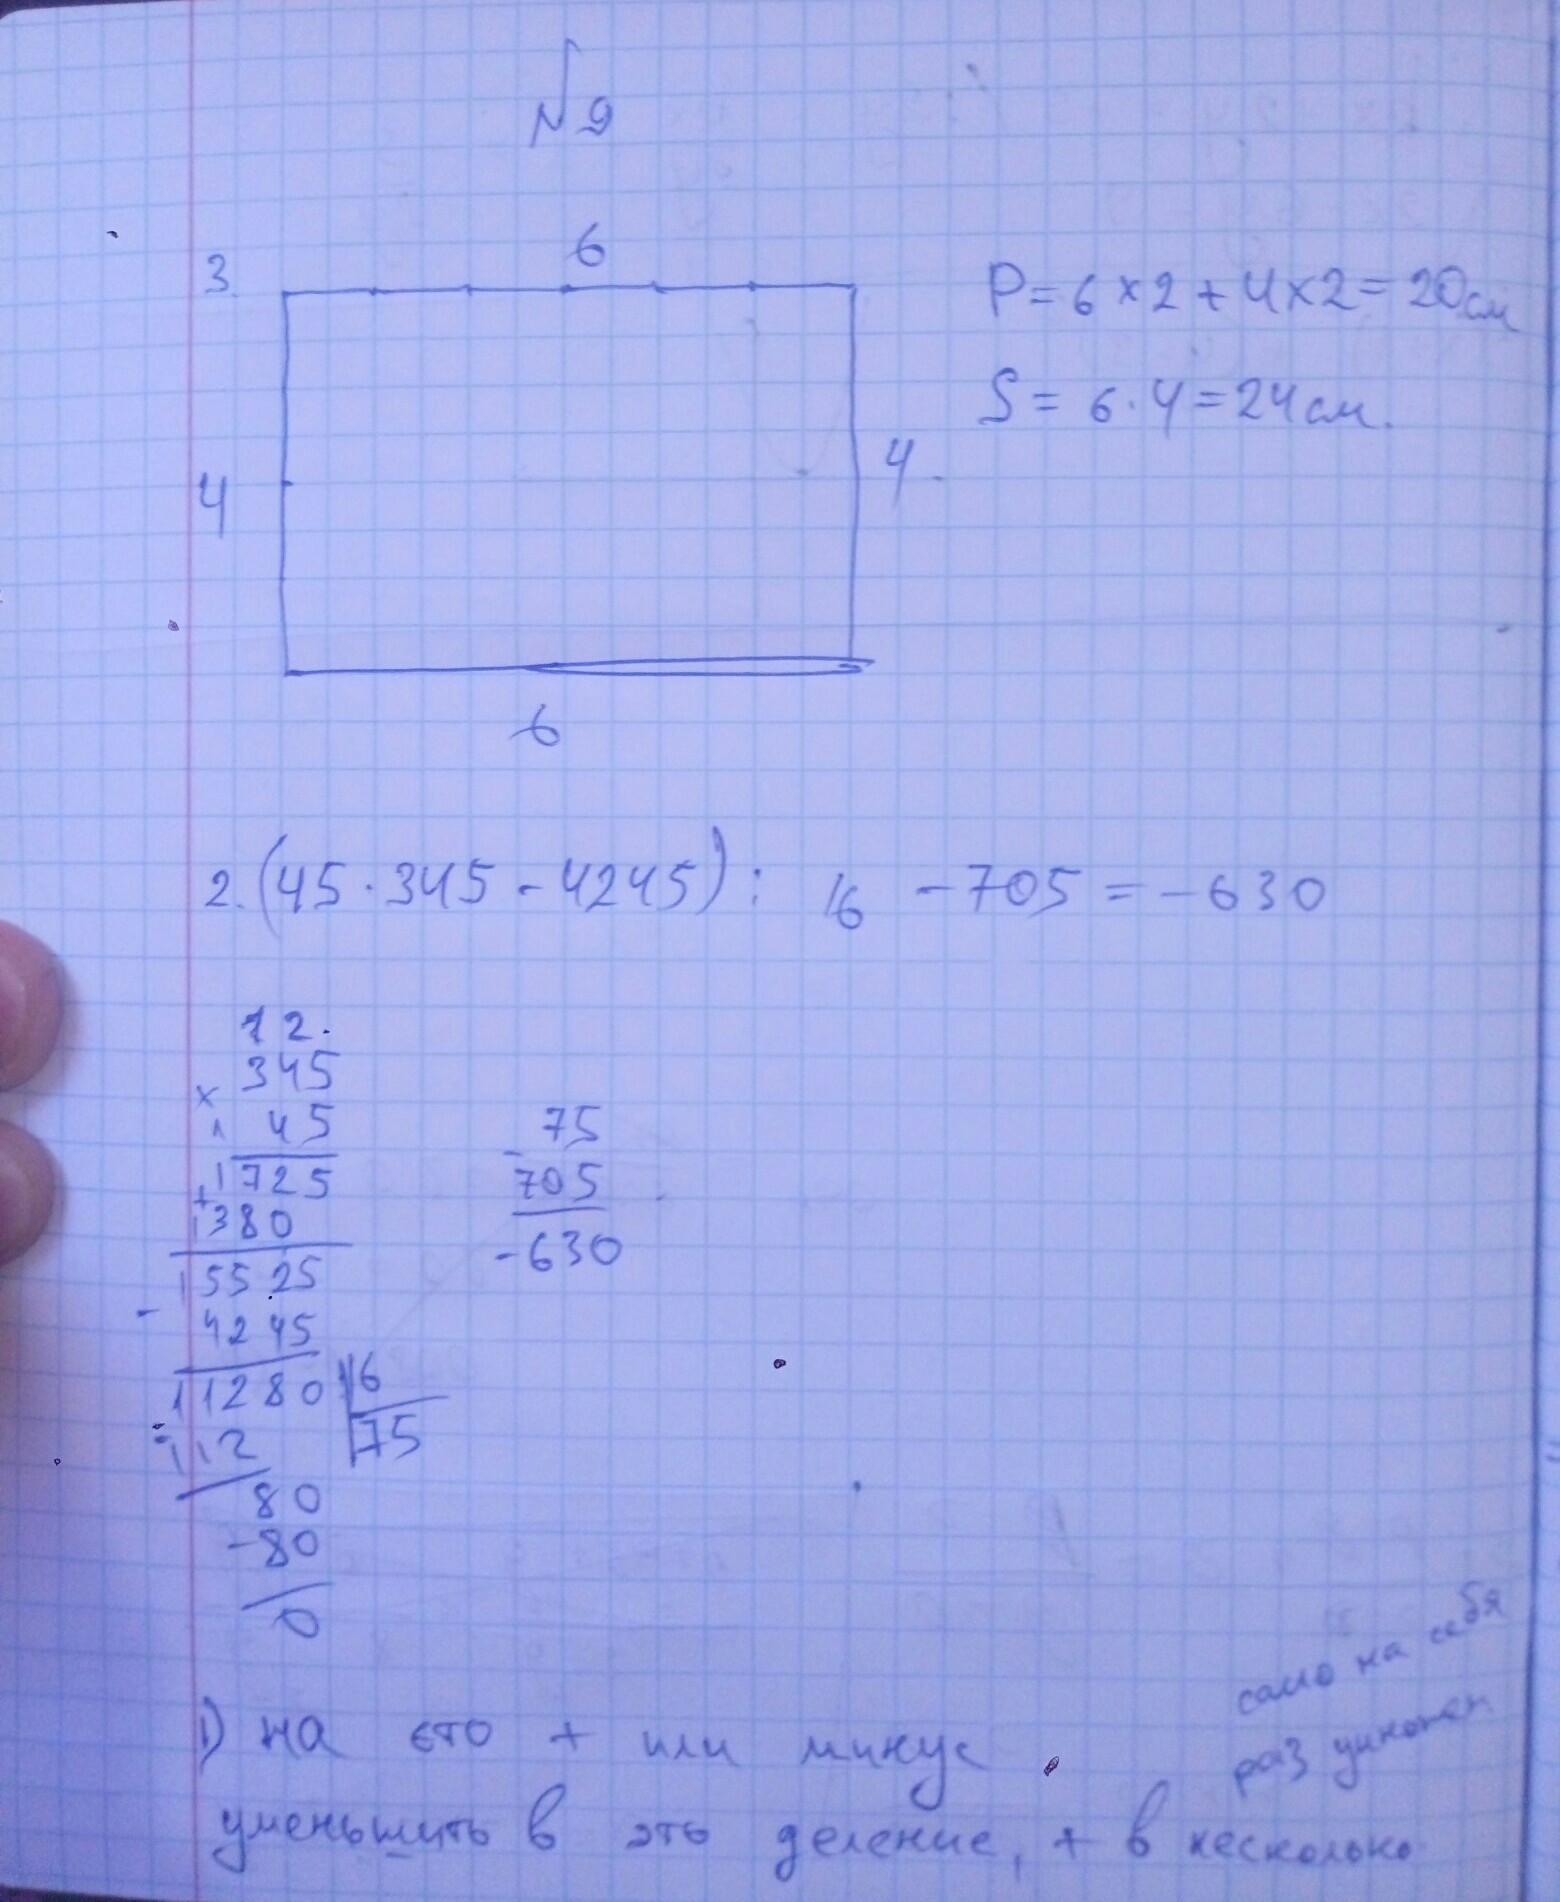 № 9
6
3.
P = 6 × 2 + 4 × 2 = 20 см
S = 6 · 4 = 24 см.
4
4.
6
2. (45 · 345 - 4245) : 16 - 705 = - 630
12.
345
×
45
1725
+
1380
15525
-
4245
11280 16
112 75
80
-80
0
75
-
705
-630
само на себя
1) на ето + или минус
раз умножен
уменьшить в это деление, + в несколько